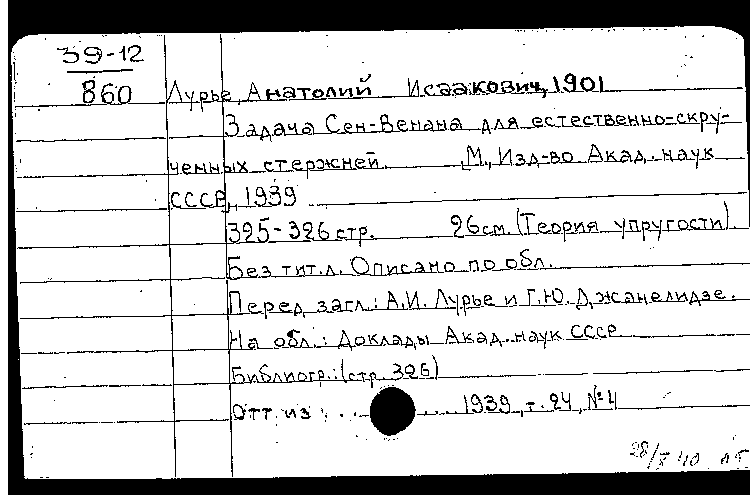 39-12
860
Лурье, Анатолий Исаакович, 1901
Задача Сен-Венана для естественно-скру-
ченных стержней. М., Изд-во Акад. наук
СССР, 1939
325-326 стр. 26 см. (Теория упругости).
Без тит. л. Описано по обл.
Перед загл.: А.И. Лурье и Г.Ю. Джанелидзе.
На обл.: Доклады Акад. наук СССР
Библиогр.: (стр. 326)
Отт. из: . . . . . . 1939, т. 24, №4
28/X 40